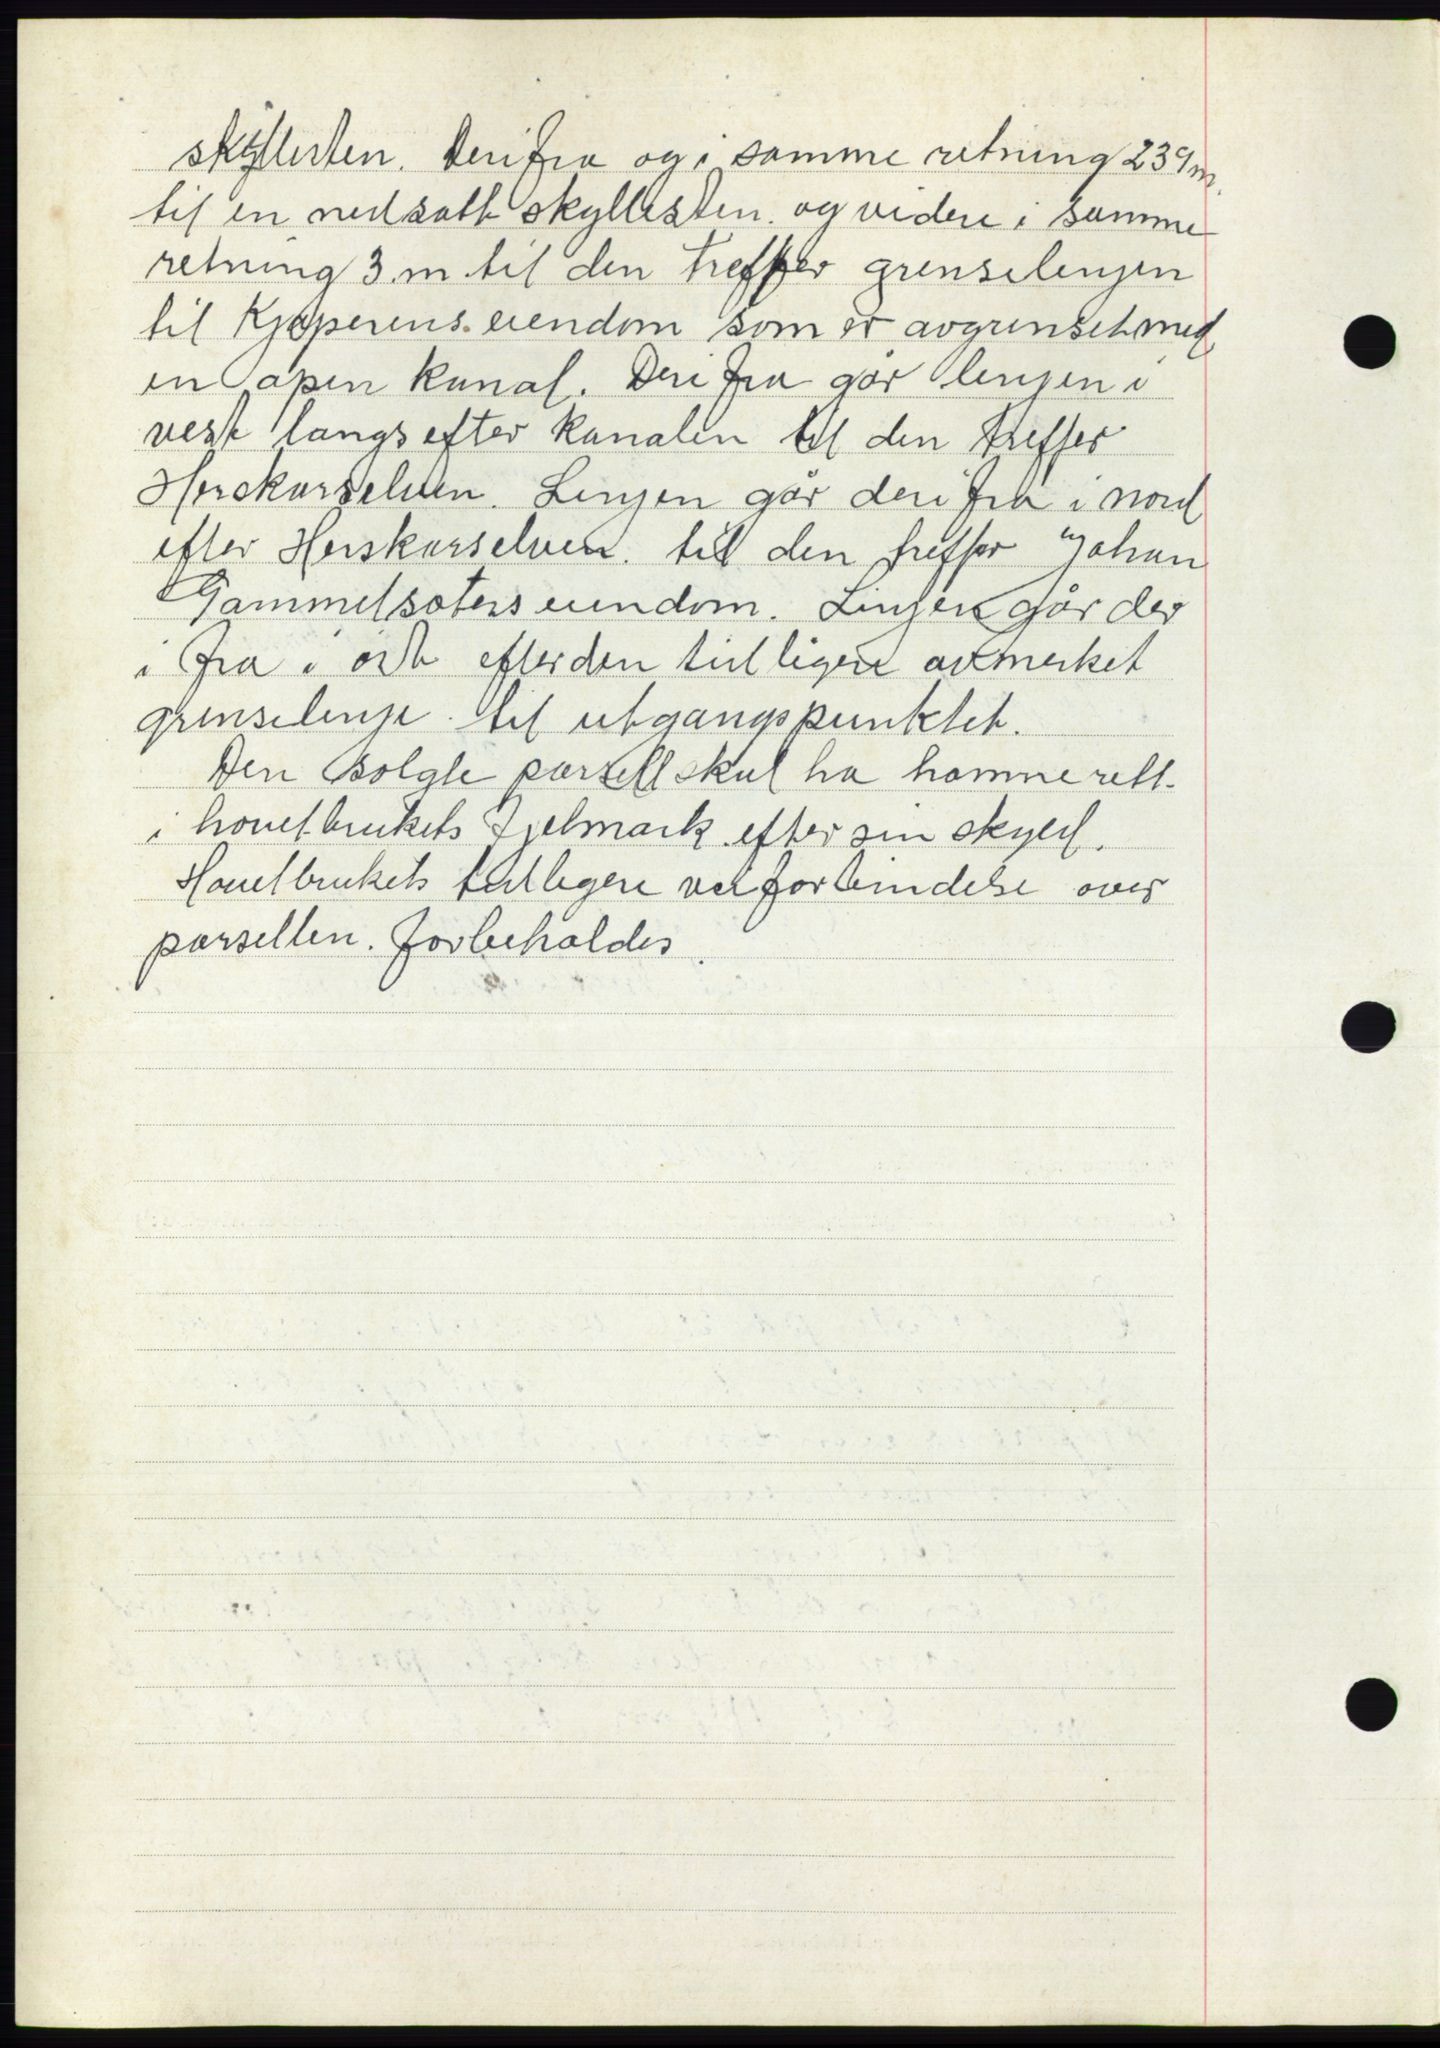 skyllesten. Derifra og i samme retning 239 m.
til en nedsatt skyllesten. og videre i samme
retning 3 m. til den treffer grenselinjen
til Kjøperens eiendom som er avgrenset med
en åpen kanal. Derifra går linjen i
vest langs efter kanalen til den treffer
Herskarselven. Linjen går derifra i nord
efter Herskarselven. til den treffer Johan
Gammelsæters eiendom. Linjen går der
i fra i øst efter den tidligere avmerket
grenselinje til utgangspunktet.
Den solgte parsell skal ha hamnerett
i hovedbrukets fjelmark efter sin skyld.
Hovedbrukets tidligere veiforbindelse over
parsellen. forbeholdes.